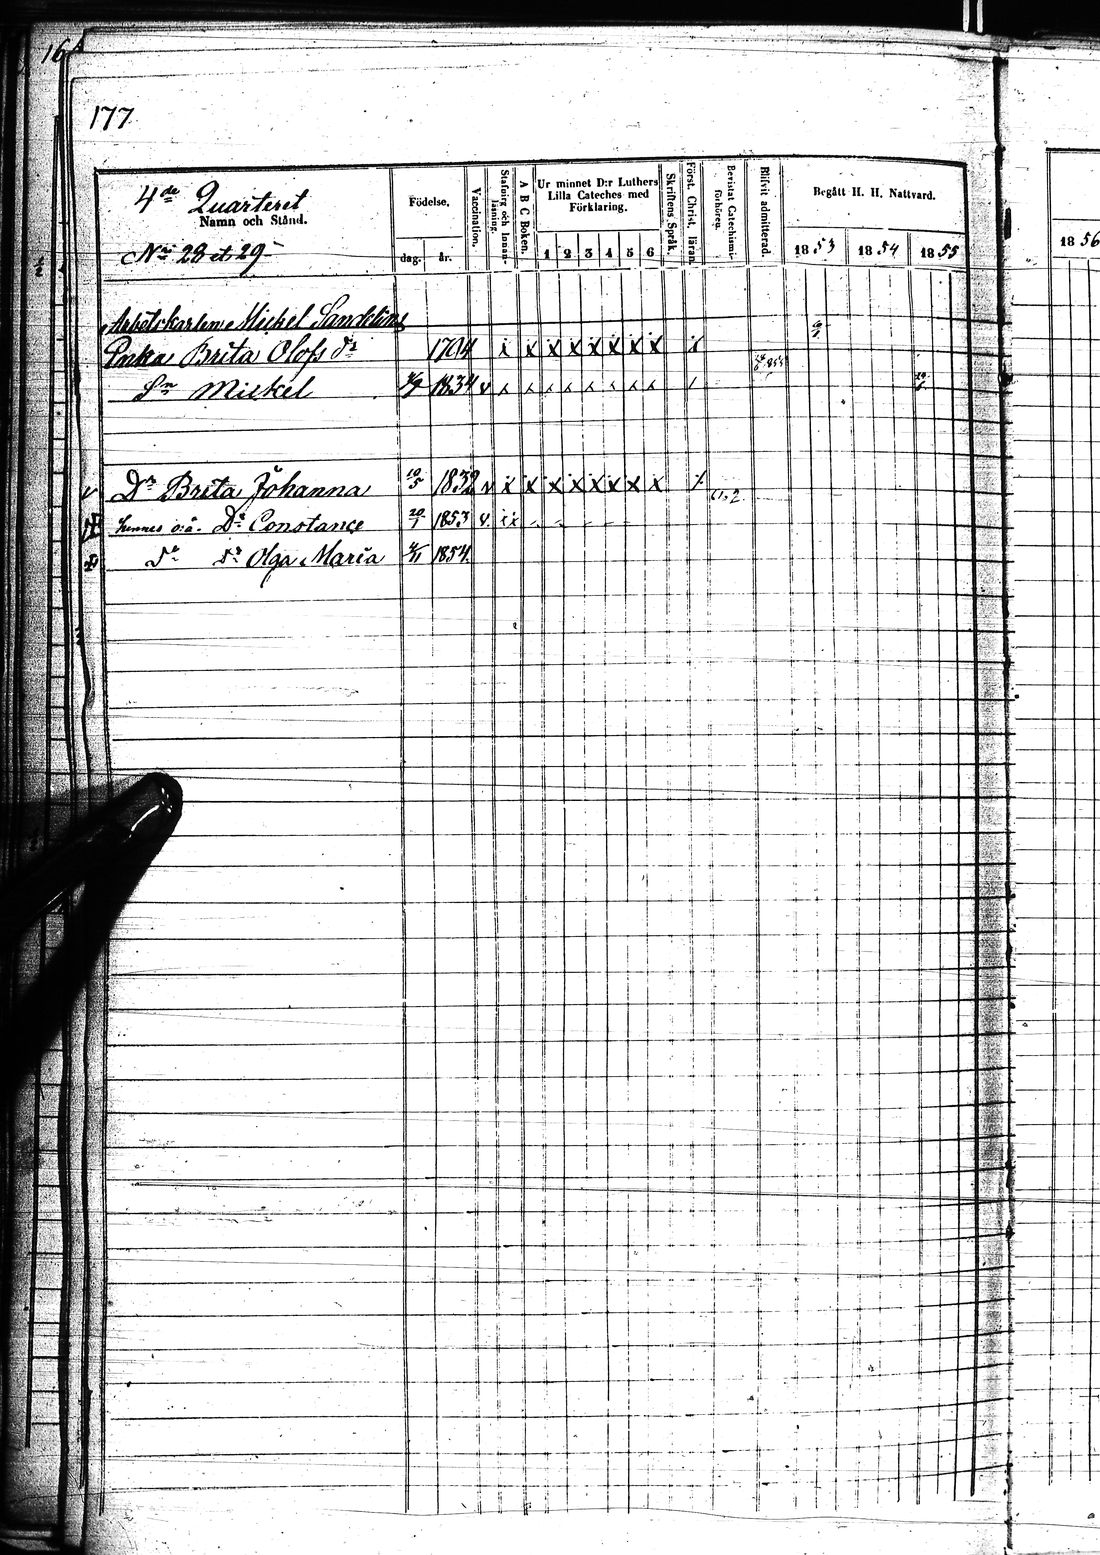 16
177
4de Quarteret
Namn och Stånd.
No 28 et 29
Födelse,
dag. år.
Vaccination.
Stafning och Innanläsning.
A B C Boken.
Ur minnet D:r Luthers Lilla Cateches med Förklaring.
1 2 3 4 5 6
Skriftens Språk.
Först. Christ. läran.
Bevistat Catechismi-förhören.
Blifvit admitterad.
Begått H. H. Nattvard.
1853 1854 1855
1856
Arbetskarlen Mickel Sandelins
Enka Brita Olofs dr 1794 x x x x x x x x x
Sn Mickel 1834 v
Dr Brita Johanna 10/5 1832 v x x x x x x x x
hennes o.ä. Dr Constance 20/1 1853 v.
Dr Olga Maria 1854